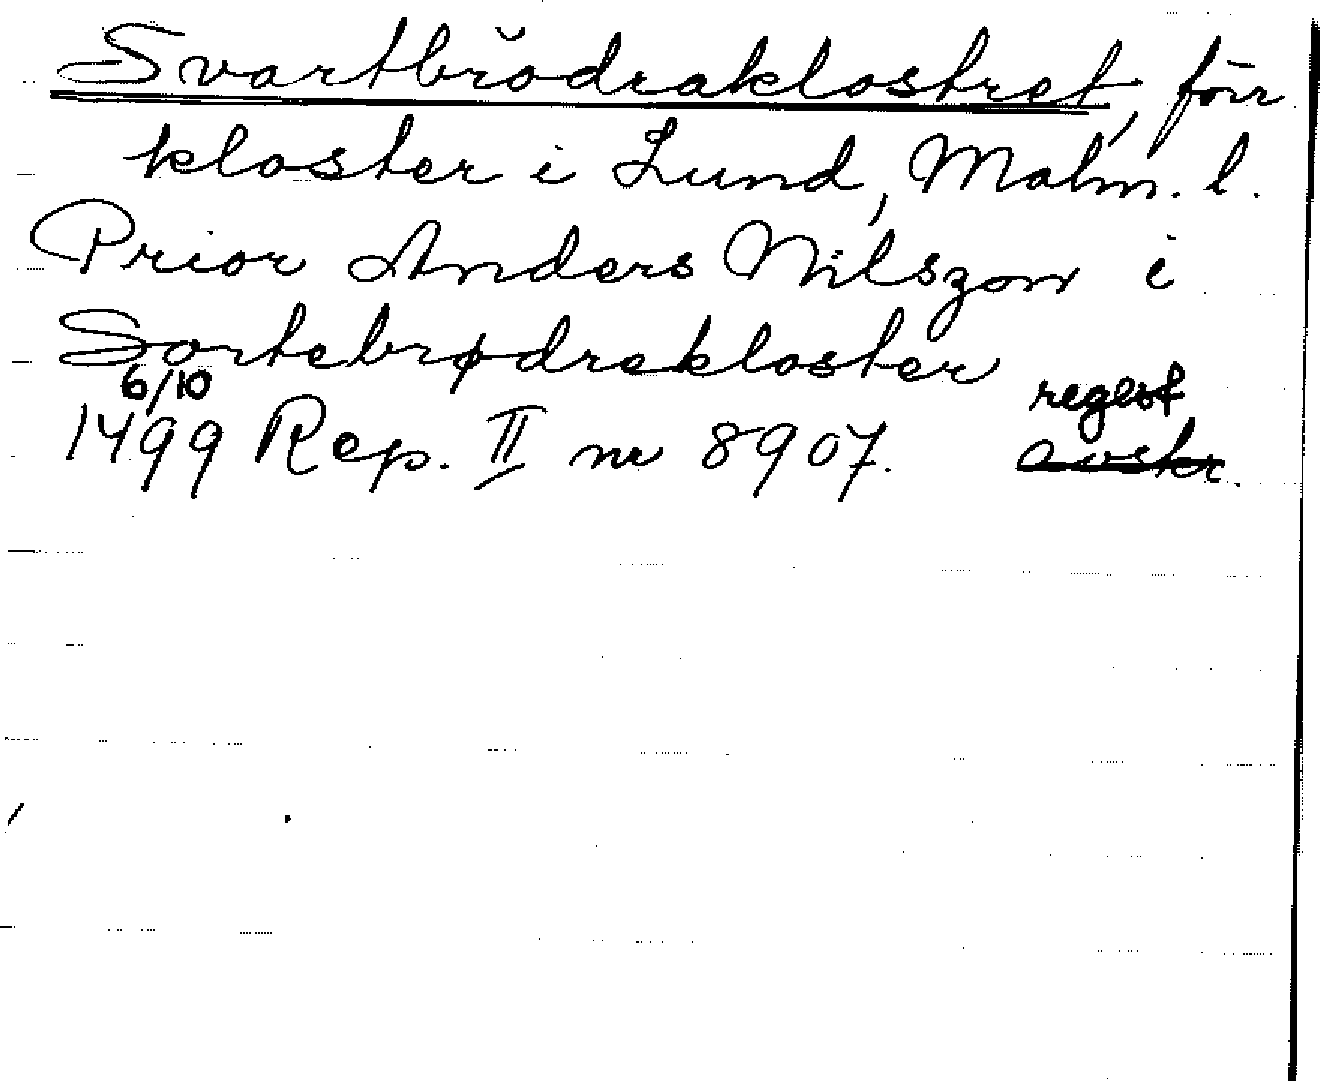 Svartbrödraklostret, förr
kloster i Lund, Malm. l.
Prior Anders Nilszon i
Sortebrødrekloster
6/10 regest
1499 Rep. II nr 8907. avskr.